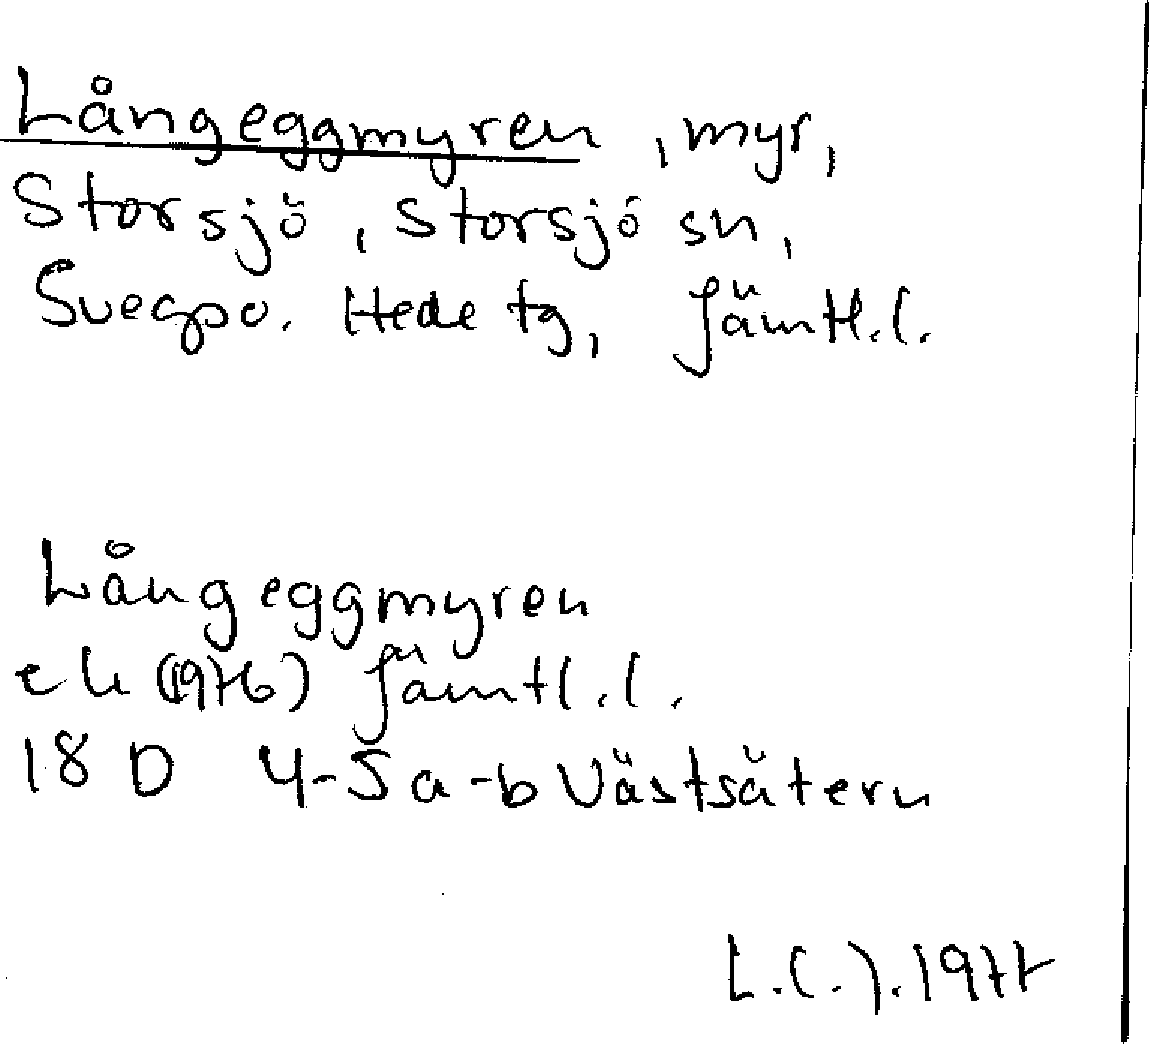 Långeggmyren, myr,
Storsjö, Storsjö sn,
Svegpo. Hede tg, Jämtl.l.
Långeggmyren
ek (1976) Jämtl.l.
18 D 4-5 a-b Västsätern
L.C.J. 1977